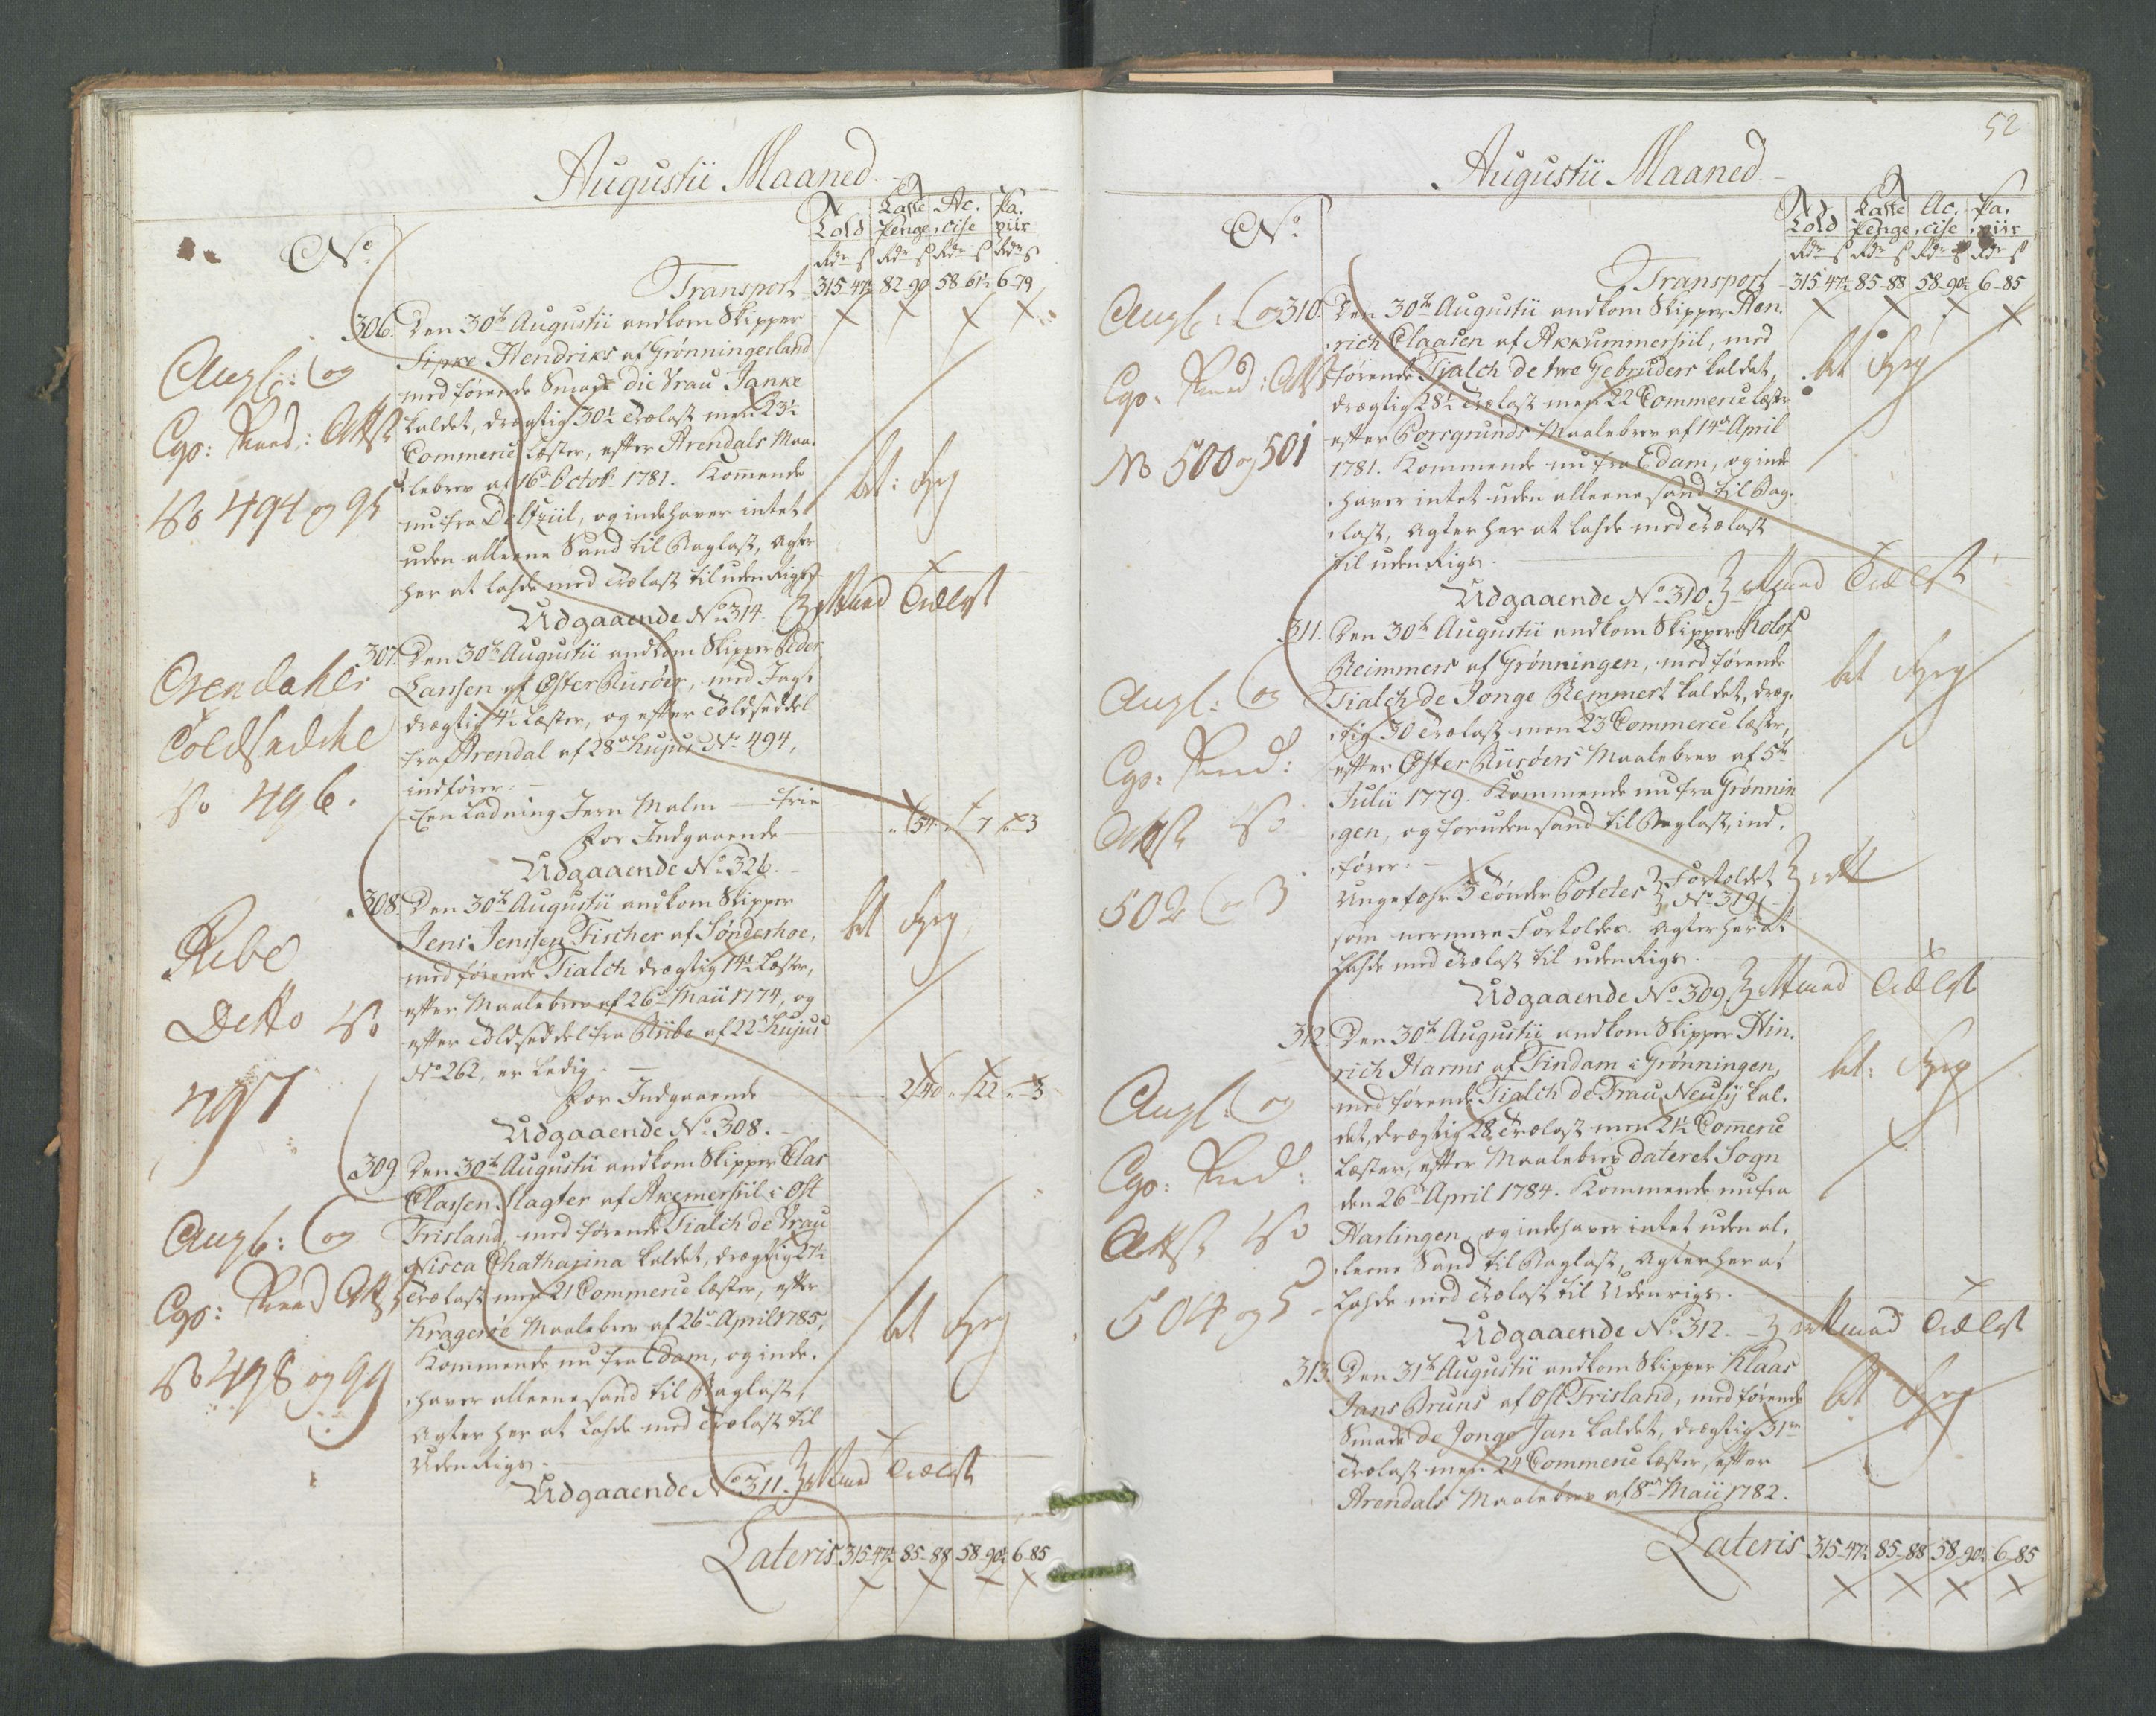 Augustii Maaned
No
Told Laste Penge Ac-cise Pa-piir
Rdr s Rdr s Rdr s Rdr s
Transport 315-47½ 82-90 58-61½ 6-79
306. Den 30te Augustii andkom Skipper
Sipke Hendriks af Grønningerland
medførende Smak Die Vrau Janke
kaldet, drægtig 30½ Trælast men 23½
Commerce Læster, efter Arendals Maa-
lebrev af 16de Octobr 1781. Kommende
nu fra Delfziil, og indehaver intet
uden alleene Sand til Baglast, agter
her at lahde med Trælast til udenRigs
Udgaaende No 314.
Angl: og
Cgo: Read: Attst
No 494 og 95
bt: Fyrg
307. Den 30te Augustii andkom Skipper Peder
Larssen af ØsterRiisøer, med Jagt
drægtig 4½ Læster, og efter Toldseddel
fra Arendal af 28de hujus No 494,
indfører:
Een Ladning Jern Malm - frie
for Indgaaende - 54 - 7 - 3
Udgaaende No 326.
Arendahls
Toldseddel
No 496.
308. Den 30te Augustii andkom Skipper
Jens Jenssen Fischer af Sønderhoe,
medførende Tialck drægtig 14½ Læster,
efter Maalebrev af 26de Maii 1774, og
efter Toldseddel fra Riibe af 22de hujus
No 262, er Ledig.
for Indgaaende - 2-40 - 22 - 3
Udgaaende No 308.
Ribe
Detto No
497
bt Fyrg
309 Den 30te Augustii andkom Skipper Clas
Classen Slagter af Akemersiil i Ost
Frisland, medførende Tialck de Vrau
Nisca Chatharina kaldet, drægtig 27½
Trælast men 21 Commerce læster, efter
Krageröe Maalebrev af 26de April 1785,
Kommende nu fra Edam, og inde-
haver alleene sand til Baglast,
Agter her at Lahde med Trælast til
UdenRigs.
Udgaaende No 311.
Angl: og
Cgo: Read Attst
No 498 og 99
bt Fyrg
Lateris 315-47½ 85-88 58-90½ 6-85
52
Augustii Maaned
No
Told Laste Penge Ac-cise Pa-piir
Rdr s Rdr s Rdr s Rdr s
Transport 315-47½ 85-88 58-90½ 6-85
310. Den 30te Augustii andkom Skipper Hen-
rich Claasen af Akkummersiil, med
førende Tjalck de twe Gebruders kaldet,
drægtig 28½ Trælast men 22 Commerce læster
efter Porsgrunds Maalebrev af 14de April
1781. Kommende nu fra Edam, og inde
haver intet uden alleene sand til Bag-
last, Agter her at lahde med Trælast
til udenRigs.
Udgaaende No 310
Angl: og
Cgo. Read: Attst
No 500 og 501
bt Fyrg
311. Den 30te Augustii andkom Skipper Rolof
Reimmers af Grønningen, medførende
Tialck de Jonge Remmert kaldet, dræg-
tig 30 Trælast men 23 Commerce læster,
efter Øster Riisøers Maalebrev af 5te
Julii 1779. Kommende nu fra Grønnin
gen, og foruden sand til Baglast, ind-
fører:
Ungefehr 3 Tønder Potetes Fortoldet No 319
som nermere Fortoldes. Agter her at
Lahde med Trælast til udenRigs.
Udgaaende No 309
Angl: og
Cgo: Read:
Attst No
502 og 3
bt Fyrg
312. Den 30te Augustii andkom Skipper Hin-
rich Harms af Tindam i Grønningen,
medførende Tialck de Frau Neusy kal-
det, drægtig 28 Trælast men 21½ Comerce
Læster, efter Maalebrev dateret Sogn
den 26de April 1784. Kommende nu fra
Harlingen, og indehaver intet uden al-
leene Sand til Baglast, Agter her at
Lahde med Trælast til Udenrigs.
Udgaaende No 312.
Angl: og
Cgo: Read:
Attst No
504 og 5
bt: Fyrg
313. Den 31te Augustii andkom Skipper Klaas
Jans Bruns af Ost Frisland, medførende
Smak de Jonge Jan kaldet, drægtig 31
Trælast men 24 Commerce læster, efter
Arendals Maalebrev af 8de Maii 1782.
bt Fyrg
Lateris 315-47½ 85-88 58-90½ 6-85